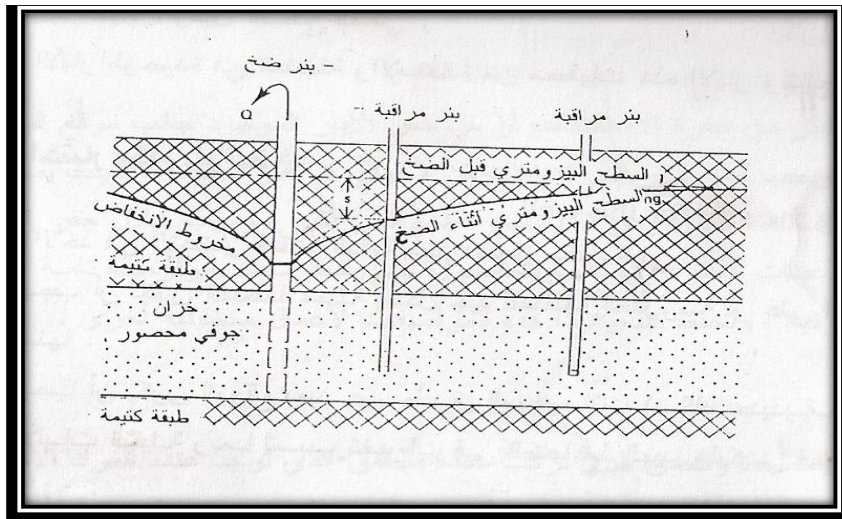 بئر ضخ -
Q
بئر مراقبة
بئر مراقبة
السطح البيزومتري قبل الضخ
s
السطح البيزومتري أثناء الضخ
ng
مخروط الأنخفاض
طبقة كتيمة
خزان
جوفي محصور
طبقة كتيمة